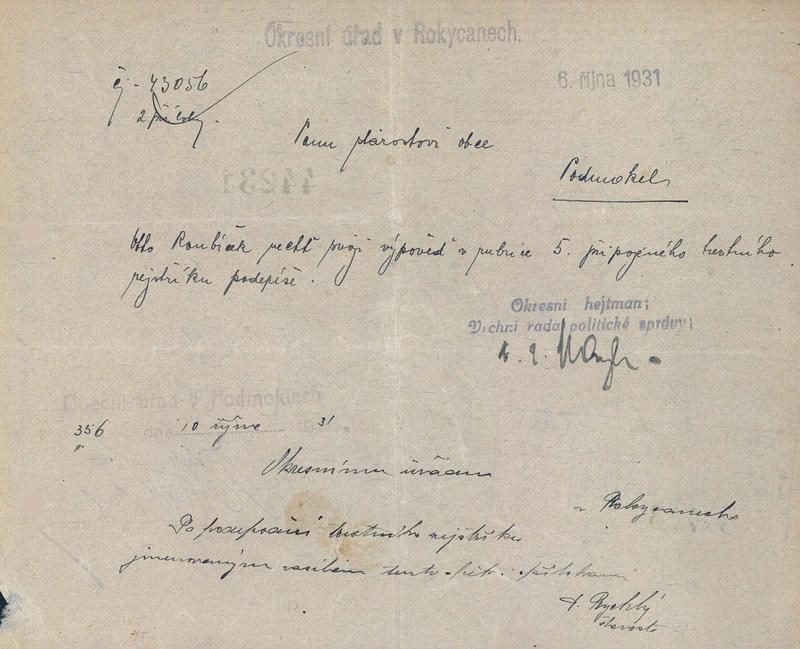 Okresní úřad v Rokycanech.
6. října 1931
čj - 43056
2 přílohy.
Panu starostovi obce
Podmokel
44231
Otto Roubíček nechť svoji výpověď v rubrice 5. připojeného trestního
rejstříku podepíše.
Okresní hejtman;
Vrchní rada politické správy;
Obecní úřad v Podmoklech
356 dne 10 října 31
Okresnímu úřadu
v Rokycanech
Po podepsání trestního rejstříku
jmenovaným zasílám tento s přílohami
Rychlý
starosta